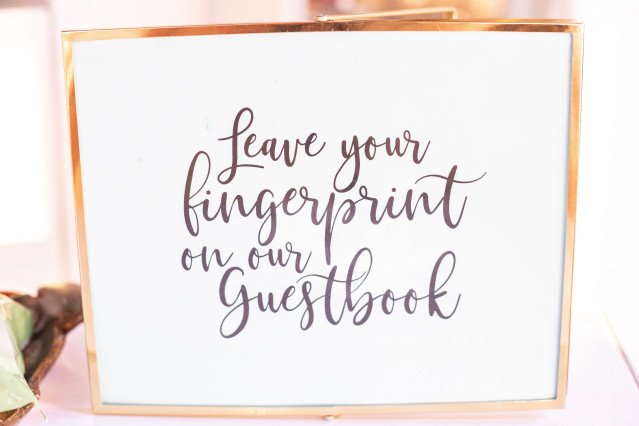 Leave your
fingerprint
on our
Guestbook